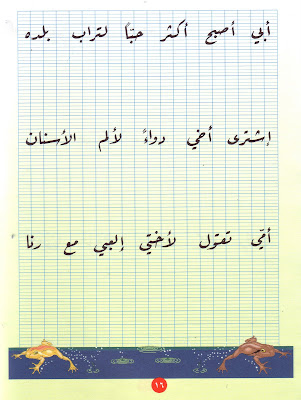 أبي أصبح أكثر حبًا لتراب بلده
إشترى أخي دواءً لألم الأسنان
أمّي تقول لأختي إلعبي مع رنا
١٦